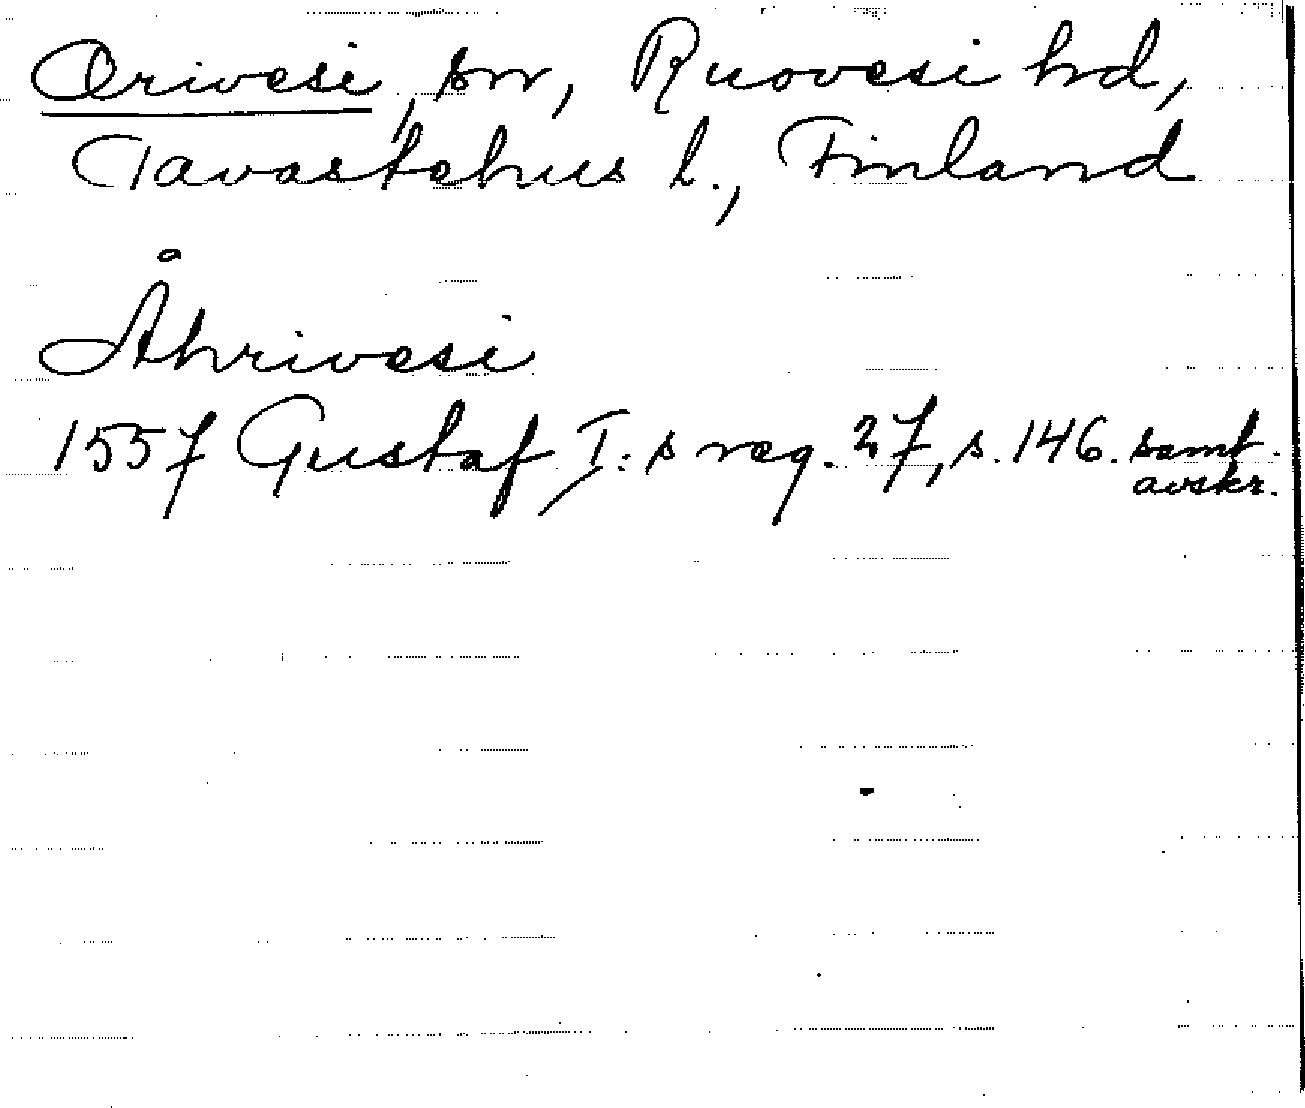 Orivesi, sn, Ruovesi hd,
Tavastehus l., Finland
Åhrivesi
1557 Gustaf I:s reg. 27, s. 146. samt.
avskr.